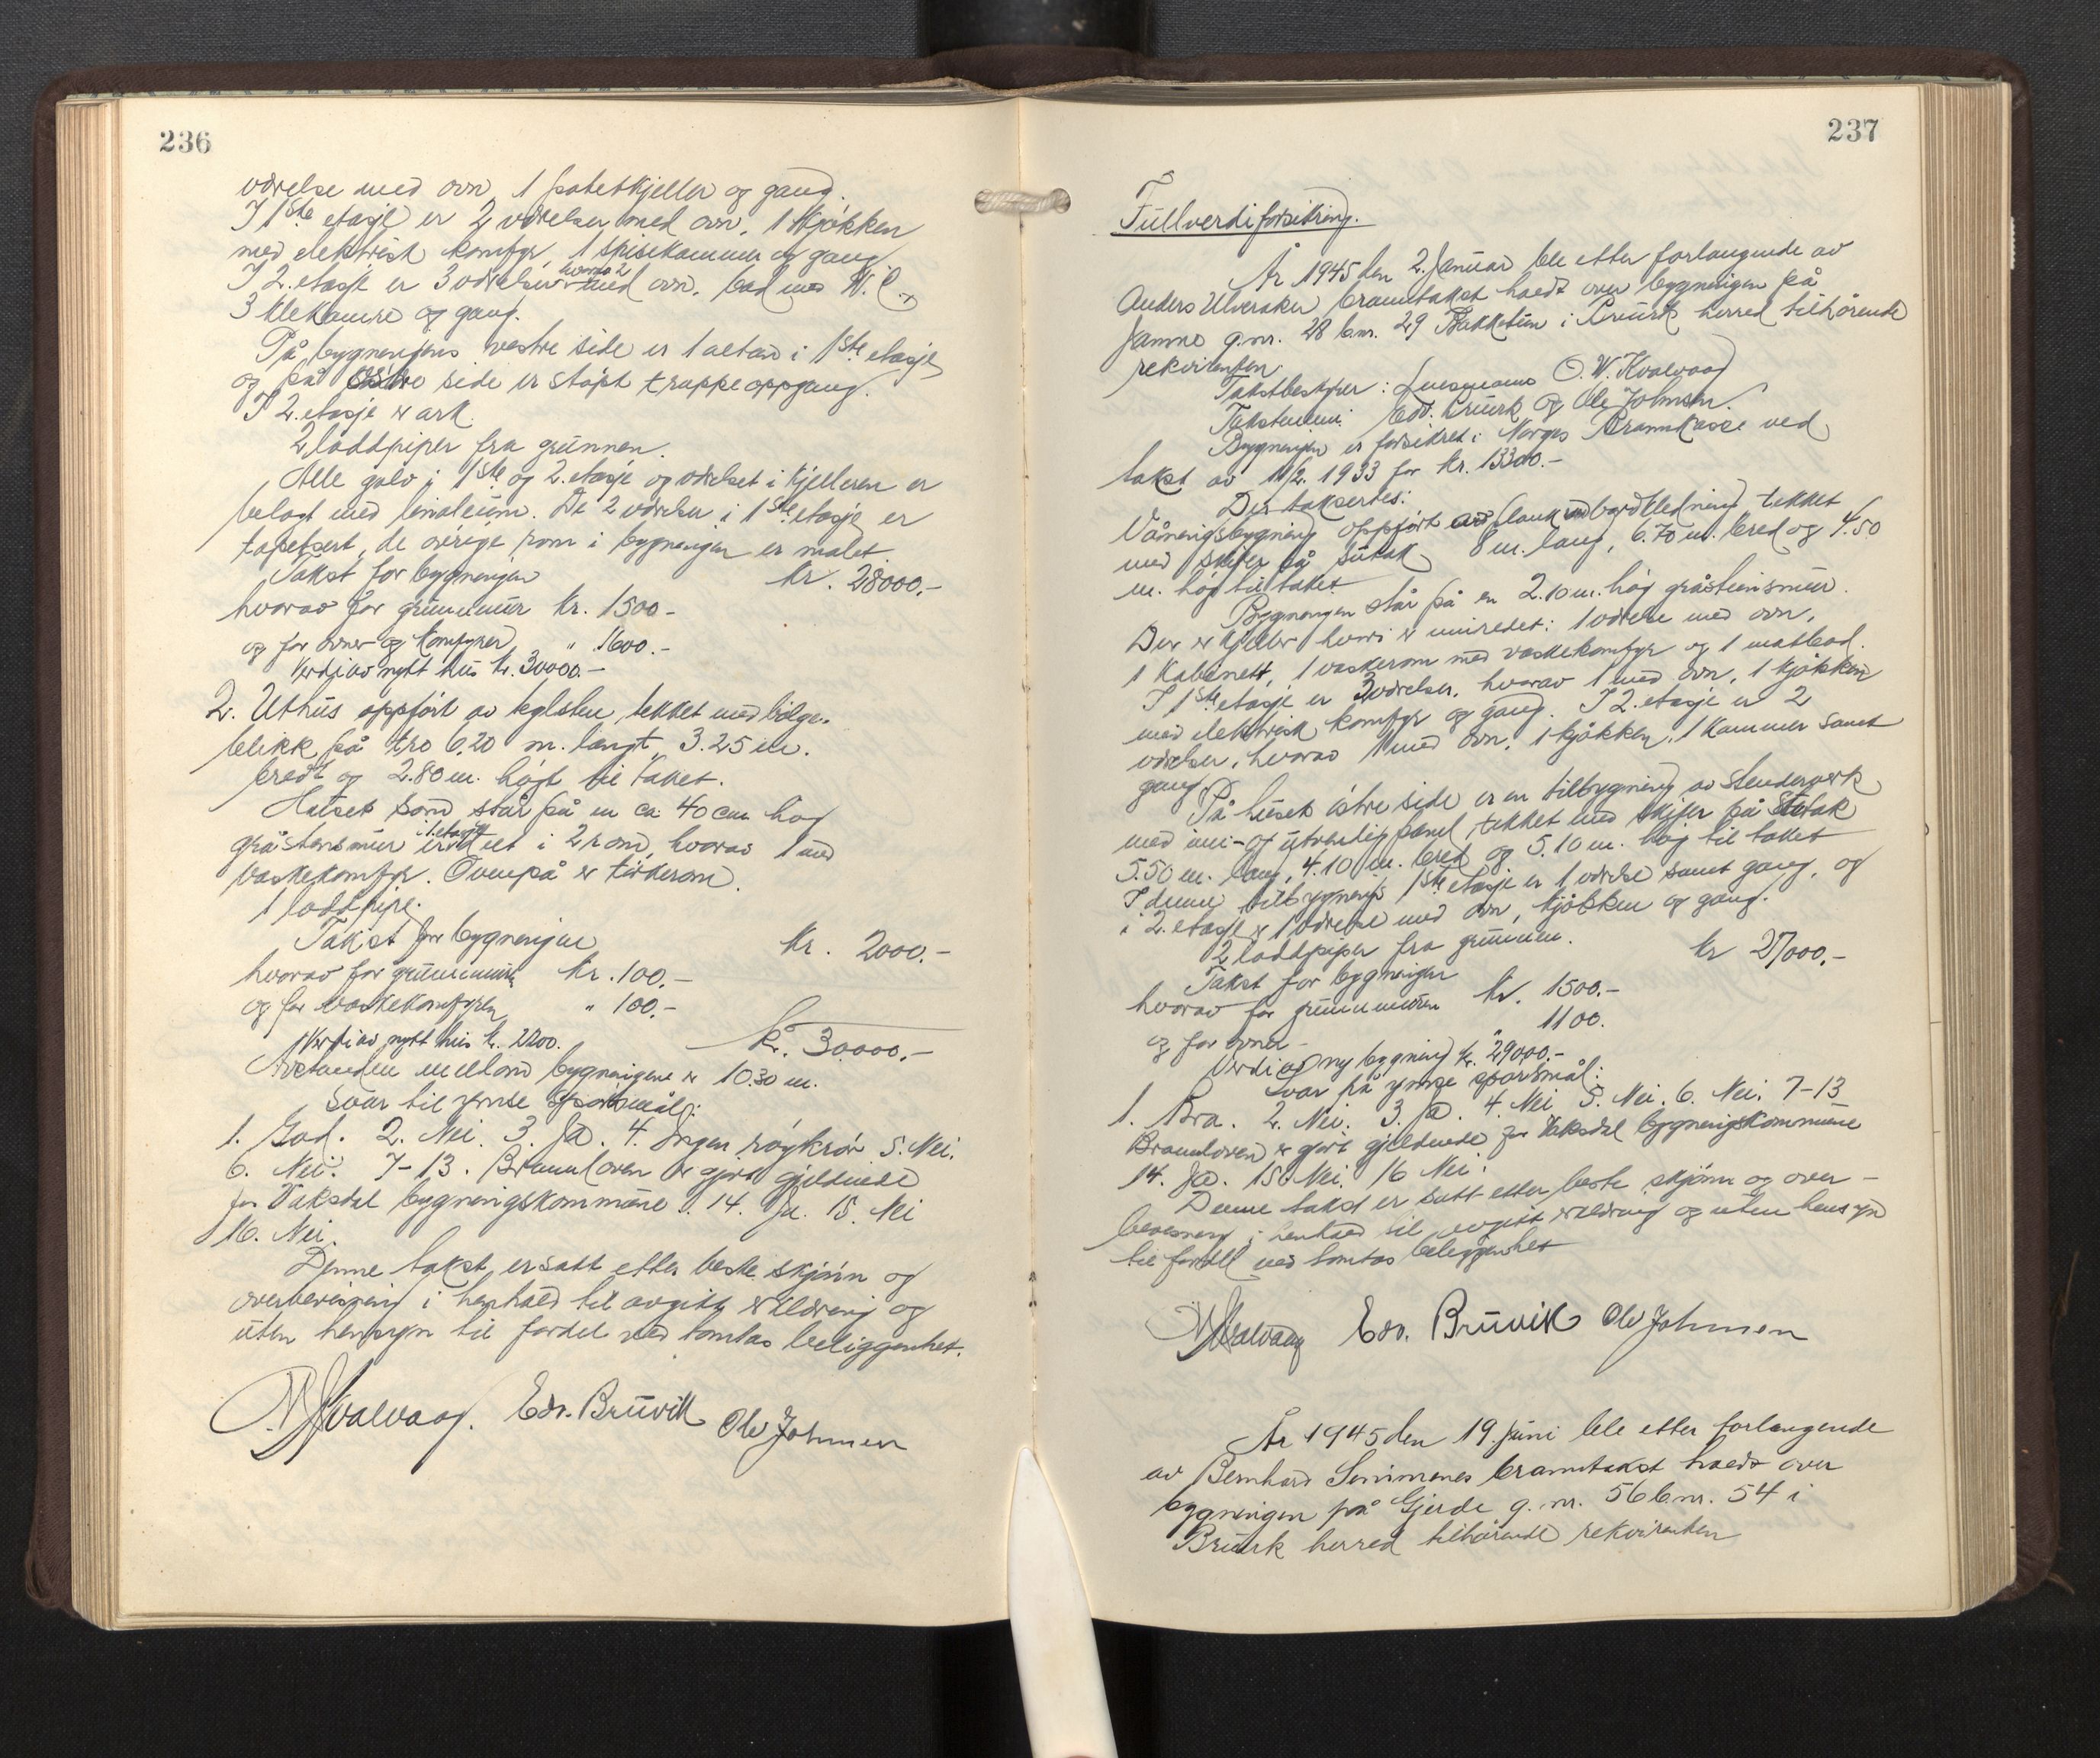 236
værelse med ovn, 1 potetkjeller og gang.
I 1ste etasje er 2 værelser med ovn, 1 kjøkken
med elektrisk komfyr, 1 spisekammer og gang
I 2. etasje er 3 værelser hvorav 2 med ovn, bad med W.C.,
3 klekamre og gang.
På bygningens vestre side er 1 altan i 1ste etasje
og på østre side er støpt trappeoppgang.
I 2. etasje er ark.
2 loddpiper fra grunnen.
Alle golv i 1ste og 2. etasje og værelset i kjelleren er
belagt med linoleum. De 2 værelser i 1ste etasje er
tapetsert, de øvrige rom i bygningen er malet.
Takst for bygningen kr. 28000.-
hvorav for grunnmur kr. 1500-
og for ovner og komfyrer " 1600.-
Verdi av nytt hus kr. 30000.-
2. Uthus oppført av teglsten, tekket med bølge-
blikk på tro 6.20 m. langt, 3.25 m.
bredt og 2.80 m. høgt til taket.
Huset som står på en ca 40 cm høg
gråstensmur er i 1. etasje delt i 2 rom, hvorav 1 med
vaskekomfyr. Ovenpå er tørkerom.
1 loddpipe.
Takst for bygningen kr. 2000.-
hvorav for grunnmuren kr. 100.-
og for vaskekomfyren " 100.-
Verdi av nytt hus kr. 2200. Kr. 30000.-
Avstanden mellom bygningene er 10.30 m.
Svar til ymse spørsmål:
1. God. 2. Nei. 3. Ja. 4. Ingen røykrør 5. Nei.
6. Nei. 7-13. Brannloven er gjort gjeldende
for Vaksdal bygningskommune. 14. Ja. 15. Nei
16. Nei.
Denne takst er satt etter beste skjønn og
overbevisning i henhold til avgitt erklæring og
uten hensyn til fordel ved tomtas beliggenhet.
O. W. Kvalvaag. Edv. Bruvik Ole Johnsen
237
Fullverdiforsikring.
År 1945 den 2. Januar ble etter forlangende av
Anders Ulveraker branntakst holdt over bygningen på
Jamne g.nr. 28 b.nr. 29 Bakketun i Bruvik herred tilhørende
rekvirenten.
Takstbestyrer: Lensmann O. W. Kvalvaag
Takstmenn: Edv. Bruvik og Ole Johnsen.
Bygningen er forsikret i Norges Brannkasse ved
takst av 11/2. 1933 for kr. 13300.-
Der takseres:
Våningsbygning oppført av plank med bordkledning tekket
med skifer på sutak 8 m. lang, 6.70 m. bred og 4.50
m. høg til taket
Bygningen står på en 2.10 m. høg gråsteinsmur.
Der er kjeller hvori er innredet: 1 værelse med ovn,
1 kabinett, 1 vaskerom med vaskekomfyr og 1 matbod.
I 1ste etasje er 2 værelser, hvorav 1 med ovn, 1 kjøkken
med elektrisk komfyr og gang. I 2. etasje er 2
værelser, hvorav 1 med ovn, 1 kjøkken, 1 kammer samt
gang.
På husets østre side er en tilbygning av stenderverk
med inn- og utvendig panel, tekket med skifer på sutak
5.50 m. lang, 4.10 m. bred og 5.10 m. høg til taket
I denne tilbygnings 1ste etasje er 1 værelse samt gang, og
i 2. etasje er 1 værelse med ovn, kjøkken og gang.
2 loddpiper fra grunnen.
Takst for bygningen kr 27000.-
hvorav for grunnmuren kr. 1500.-
og for ovner - " 1100.
Verdi av ny bygning kr. 29000.-
Svar på ymse spørsmål:
1. Bra. 2. Nei. 3. Ja. 4. Nei 5. Nei. 6. Nei. 7-13
Brannloven er gjort gjeldende for Vaksdal bygningskommune
14. Ja. 15. Nei. 16 Nei.
Denne takst er satt etter beste skjønn og over-
bevisning i henhold til avgitt erklæring og uten hensyn
til fordel ved tomtas beliggenhet
O. W. Kvalvaag Edv. Bruvik Ole Johnsen
År 1945 den 19. Juni ble etter forlangende
av Bernhard Simmenes branntakst holdt over
bygningen på Gjerde g. nr. 56 b.nr. 54 i
Bruvik herred tilhørende rekvirenten